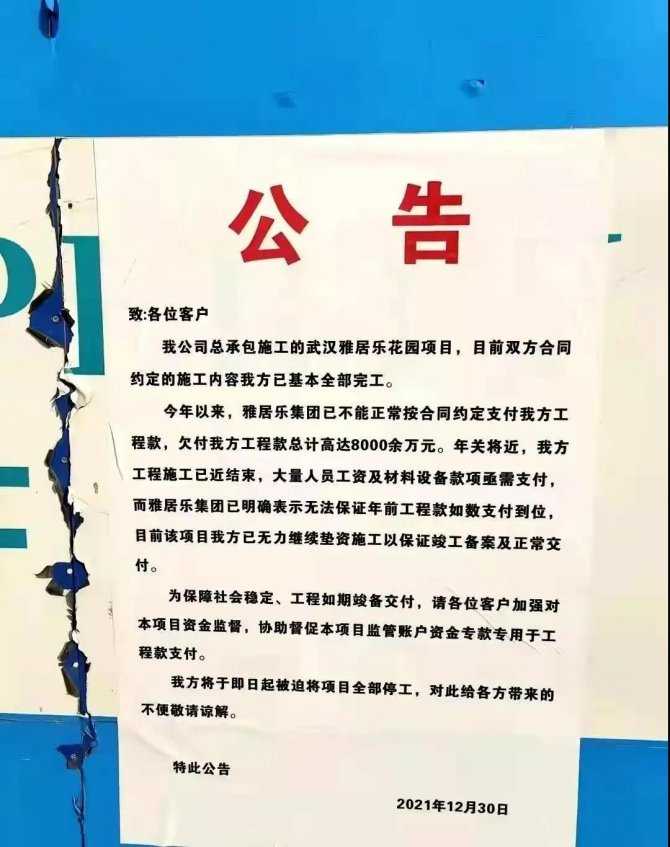 公 告
致:各位客户
我公司总承包施工的武汉雅居乐花园项目，目前双方合同
约定的施工内容我方已基本全部完工。
今年以来，雅居乐集团已不能正常按合同约定支付我方工
程款，欠付我方工程款总计高达8000余万元。年关将近，我方
工程施工已近结束，大量人员工资及材料设备款项亟需支付，
而雅居乐集团已明确表示无法保证年前工程款如数支付到位，
目前该项目我方已无力继续垫资施工以保证竣工备案及正常交
付。
为保障社会稳定、工程如期竣备交付，请各位客户加强对
本项目资金监督，协助督促本项目监管账户资金专款专用于工
程款支付。
我方将于即日起被迫将项目全部停工，对此给各方带来的
不便敬请谅解。
特此公告
2021年12月30日